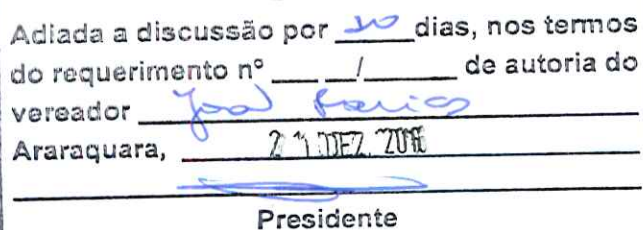 Adiada a discussão por ____ dias, nos termos
do requerimento nº ____ __/______ de autoria do
vereador
Araraquara, DEZ. 
Presidente